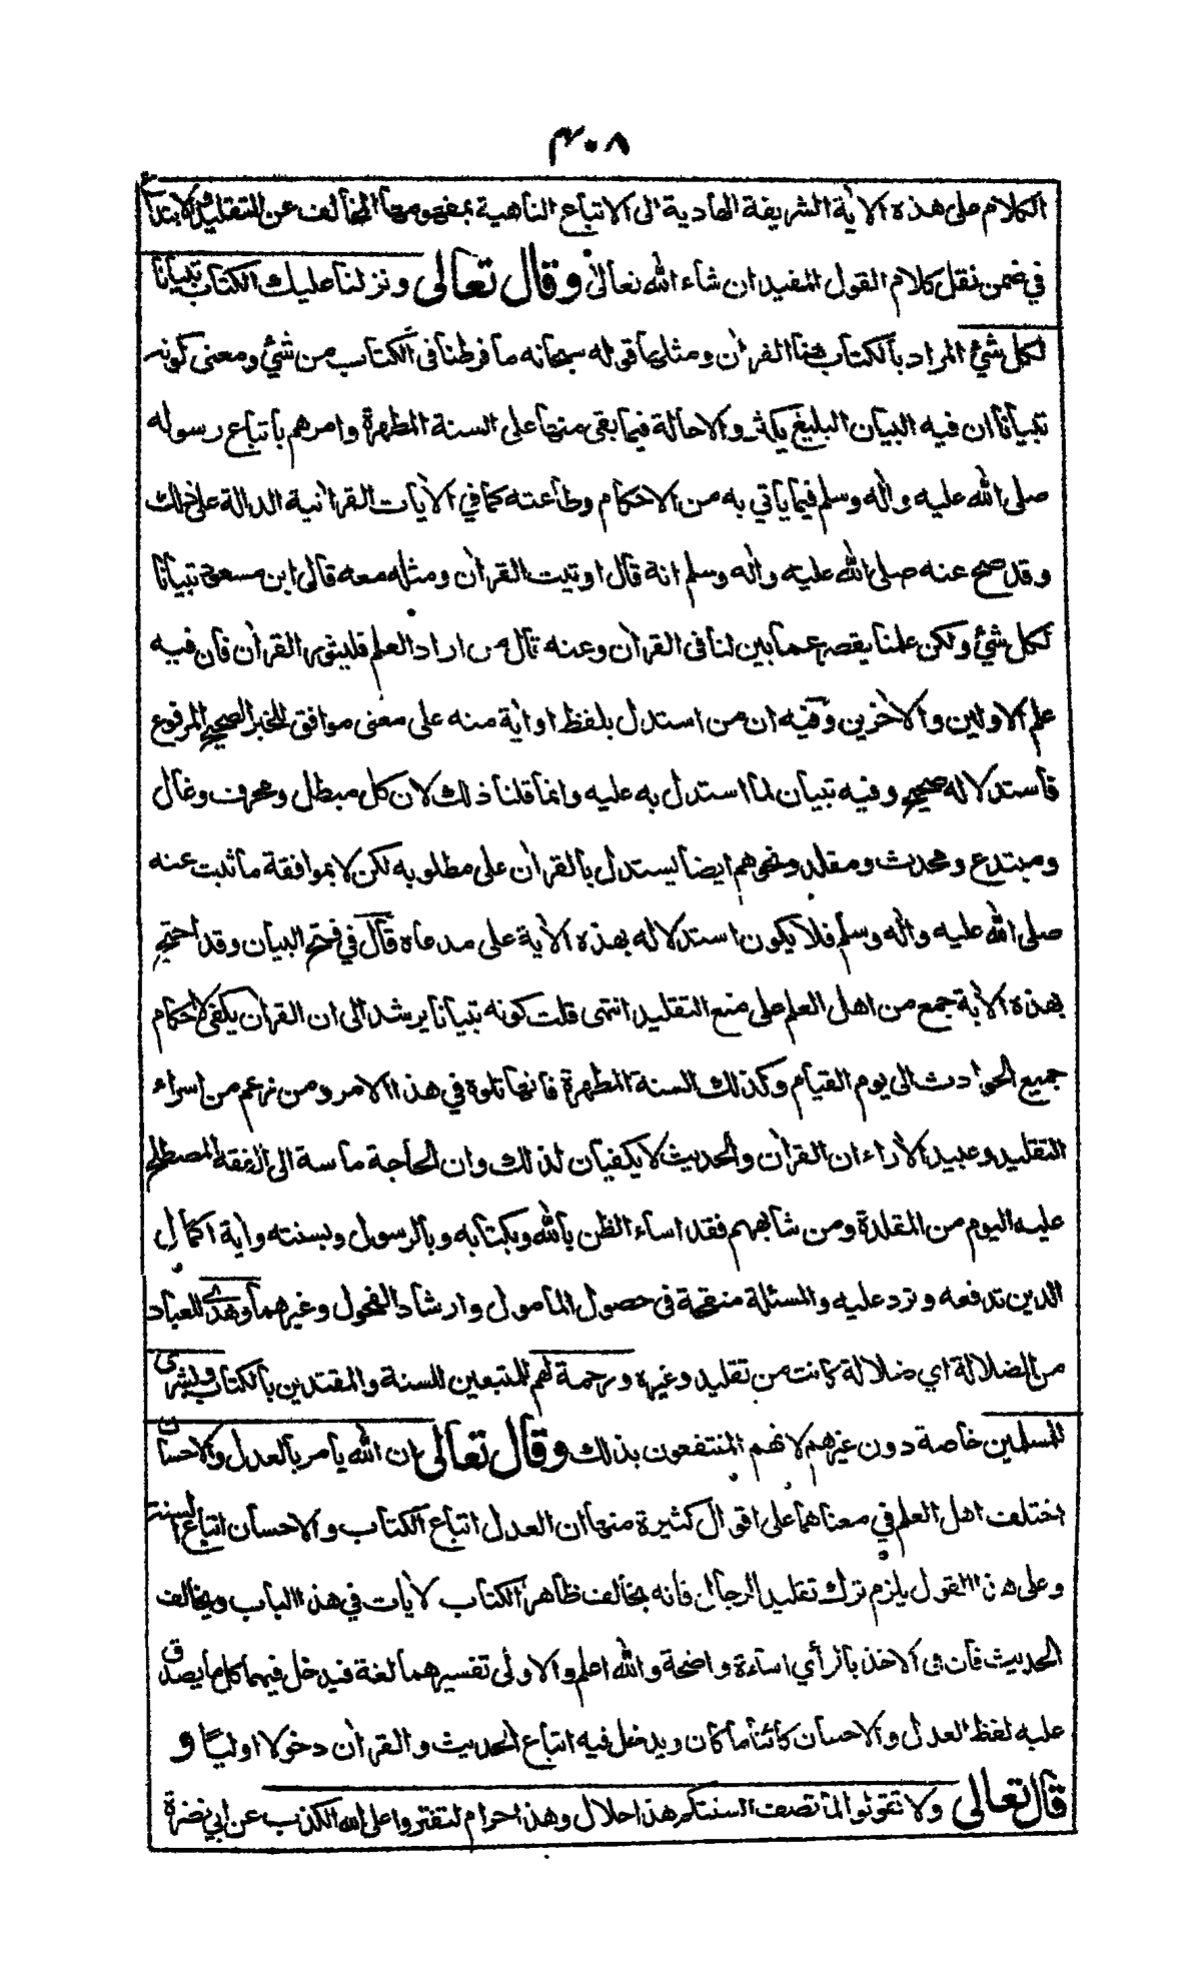 ٣٠٨
الكلام على هذه الاية الشريفة الهادية الى الاتباع الناهية بمفهومها المخالف عن التقليد والابتداع
في ضمن نقل كلام القول المفيد ان شاء الله تعالى وقال تعالى ونزلنا عليك الكتاب تبيانا
لكل شيء المراد بالكتاب هنا القرأن ومثلها قوله سبحانه ما فرطنا في الكتاب من شيء ومعنى كونه
تبيانا ان فيه البيان البليغ بكثر والاحالة فيما بقي منها على السنة المطهرة وامرهم باتباع رسوله
صلى الله عليه واله وسلم فيما يأتي به من الاحكام وطاعته كما في الأيات القرأنية الدالة على ذلك
وقد صح عنه صلى الله عليه واله وسلم انه قال اوتيت القرأن ومثله معه قال ابن مسعود تبيانا
لكل شيء ولكن علمنا يقصر عما بين لنا في القرأن وعنه قال من اراد العلم فليثور القرأن فان فيه
علم الاولين والأخرين وفيه ان من استدل بلفظ او اية منه على معنى موافق للخبر الصحيح المرفوع
فاستدلاله صحيح وفيه تبيان لما استدل به عليه وانما قلنا ذلك لان كل مبطل ومحرف وغال
ومبتدع ومحدث ومقلد ونحوهم ايضا يستدل بالقرأن على مطلوبه لكن لا بموافقة ما ثبت عنه
صلى الله عليه واله وسلم فلا يكون استدلاله بهذه الأية على مدعاه قال في فتح البيان وقد احتج
بهذه الأية جمع من اهل العلم على منع التقليد انتهى قلت كونه تبيانا يرشد الى ان القرأن يكفي لاحكام
جميع الحوادث الى يوم القيام وكذلك السنة المطهرة فانها تلوه في هذا الامر ومن زعم من اسراء
التقليد وعبيد الأراء ان القرأن والحديث لا يكفيان لذلك وان الحاجة ماسة الى الفقه المصطلح
عليه اليوم من المقلدة ومن شابههم فقد اساء الظن بالله وبكتابه وبالرسول وبسنته وأية اكمال
الدين تدفعه وترد عليه والمسئلة منقحة في حصول المأمول وارشاد الفحول وغيرهما وهدى للعباد
من الضلالة اي ضلالة كانت من تقليد وغيره ورحمة لهم للمتبعين للسنة والمقتدين بالكتاب وبشرى
للمسلمين خاصة دون غيرهم لانهم المنتفعون بذلك وقال تعالى ان الله يأمر بالعدل والاحسان
اختلف اهل العلم في معناهما على اقوال كثيرة منها ان العدل اتباع الكتاب والاحسان اتباع السنة
وعلى هذا القول يلزم ترك تقليد الرجال فانه يخالف ظاهر الكتاب لأيات في هذا الباب ويخالف
الحديث فان في الاخذ بالرأي اساءة واضحة والله اعلم والاولى تفسيرهما لغة فيدخل فيهما كل ما يصدق
عليه لفظ العدل والاحسان كائنا ما كان ويدخل فيه اتباع الحديث والقرأن دخولا اوليا و
قال تعالى ولا تقولوا لما تصف السنتكم هذا حلال وهذا حرام لتفتروا على الله الكذب عن ابي نضرة